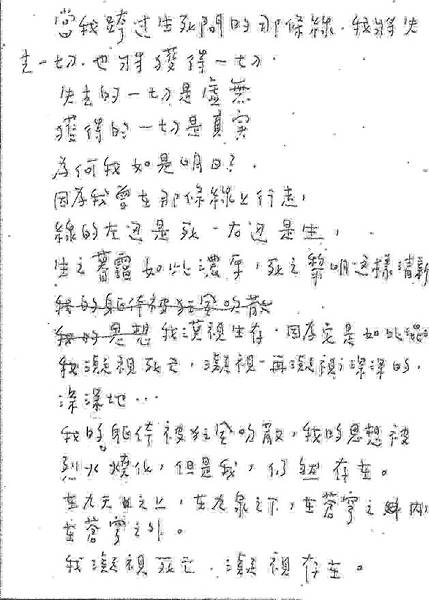 當我跨过生死間的那條線,我將失
去一切,也將獲得一切.
失去的一切是虛無
獲得的一切是真实
為何我如是明白?
因為我曾在那條線上行走,
線的左边是死,右边是生,
生之暮靄如此濃厚,死之黎明這樣清新
我的軀体被狂風吹散
我的思想 我漠視生存,因為它是如此
我凝視死亡,凝視,再凝視,深深的,
深深地…
我的軀体被狂風吹散,我的思想被
烈火燒化,但是我,仍然存在。
在九天之上,在九泉之下,在蒼穹之內
在蒼穹之外。
我凝視死亡,凝視存在。